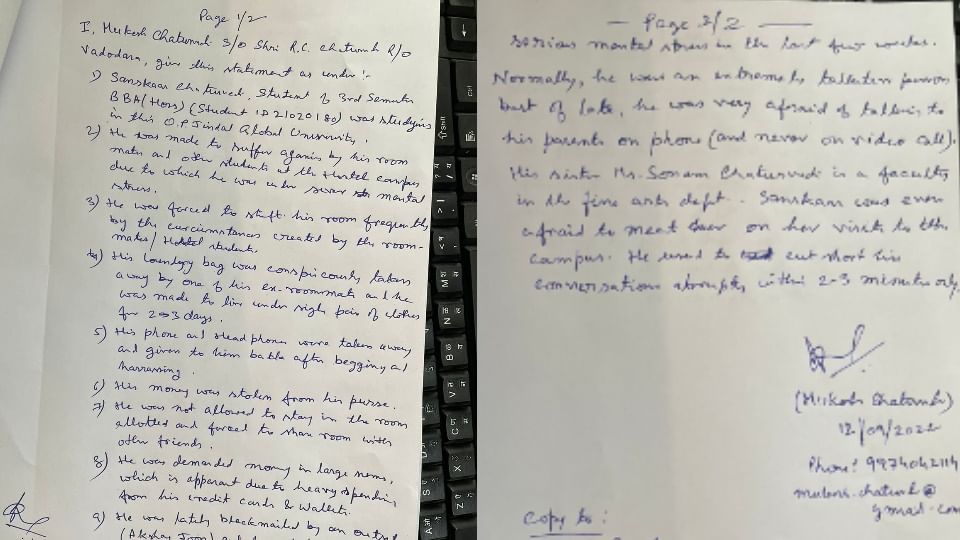 Page 1/2
I, Mukesh Chaturvedi S/O Shri R.C. Chaturvedi R/O
Vadodara, give this statement as under :-
1) Sanskaar Chaturvedi, Student of 3rd Semester
BBA (Hons) (Student ID 21020180) was studying
in this O.P Jindal Global University.
2) He was made to suffer by his room
mates and other students at the Hostel campus
due to which he was under sever mental
stress.
3) He was forced to shift his room frequently
by the circumstances created by the room-
mates/ Hostel students.
4) His laundry bag was taken
away by one of his ex-roommate and he
was made to live under pair of clothes
for 2-3 days.
5) His phone and Head phones were taken away
and given to him after begging and
harrassing.
6) His money was stolen from his purse.
7) He was not allowed to stay in the room
allotted and forced to share room with
other friends.
8) He was demanded money in large
which is apparant due to heavy spending
from his credit cards & Wallets.
9) He was lately blackmailed by an
(Akshay
— Page 2/2 —
serious mental stress in the last few weeks.
Normally, he was an extremely person
but of late, he was very afraid of talking to
his parents on phone (and never on video call).
His sister Ms. Sonam Chaturvedi is a faculty
in the fine arts dept. Sanskaar was even
afraid to meet her on her visits to the
campus. He used to cut short his
conversations abruptly within 2-3 minutes only.
(Mukesh Chaturvedi)
12/09/2022
Phone: 9974042114
@
gmail.com
Copy to :